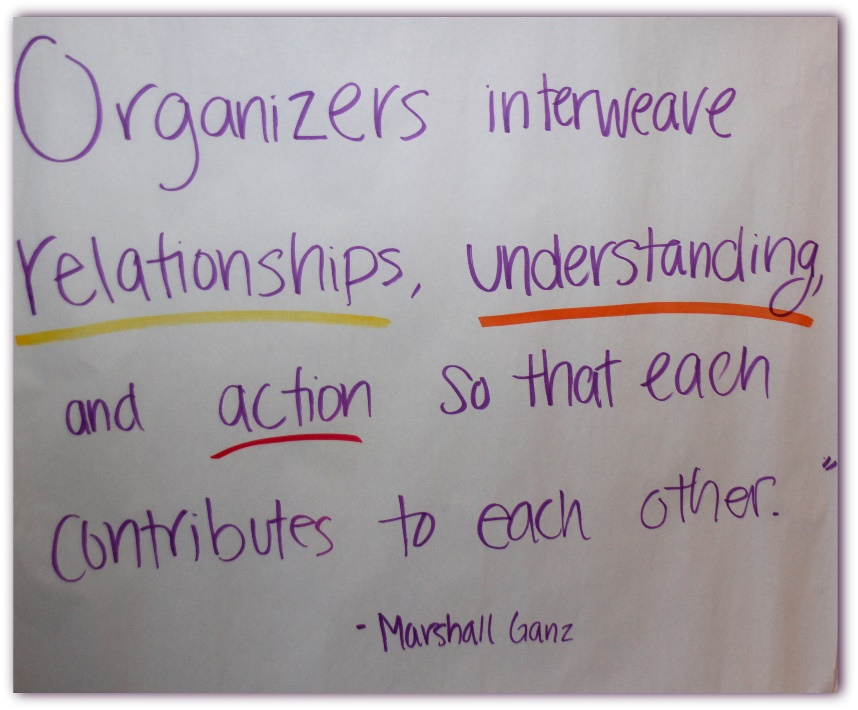 Organizers interweave
relationships, understanding,
and action so that each
contributes to each other."
- Marshall Ganz